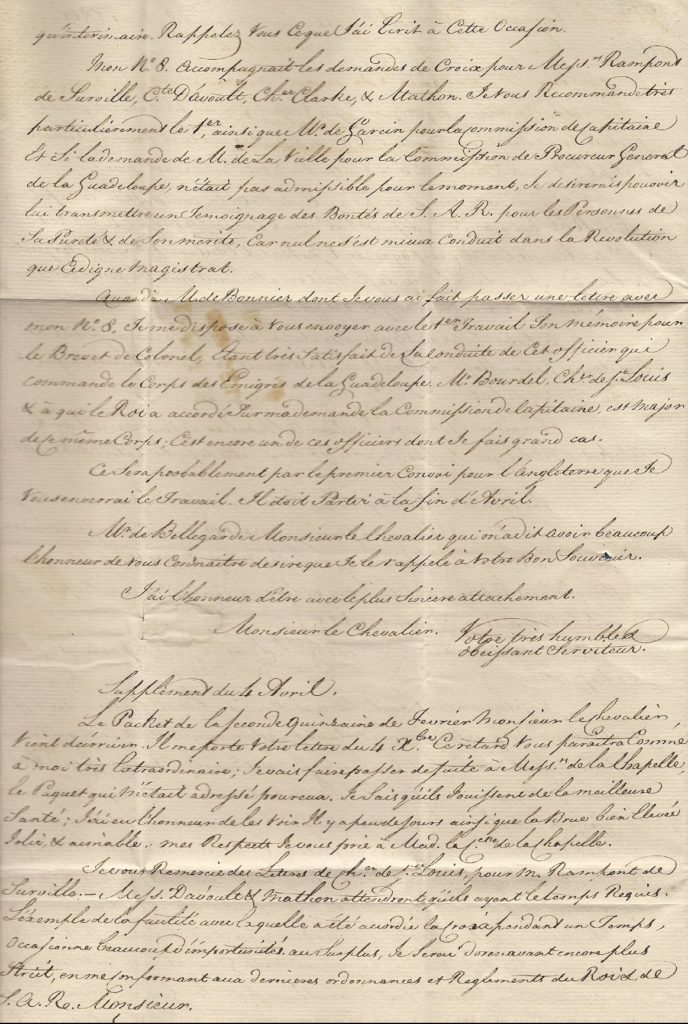 qu'interimaire. Rappelez Vous Ceque J'ai Ecrit à Cette Occasion.
Mon N.º 8. Accompagnait les demandes de Croix pour Mess.rs Rampont
de Surville, C.te Davoult, Ch.er Clarke, & Mathon. Je Vous Recommande très
particulièrement le 1.er, ainsique M.r de Garcin pour la commission de Capitaine
Et Si la demande de M. de La Ville pour la Commission de Procureur General
de la Guadeloupe, n'était pas admissible pour le moment, Je desirerais pouvoir
lui transmettre un Temoignage des Bontés de S. A. R. pour les Personnes de
Sa Pureté & de Son merite, Car nul ne s'est mieux Conduit dans la Revolution
que Ce digne Magistrat.
Quand à M. de Bonnier dont Je vous ai fait passer une lettre avec
mon N.º 8, Je me dispose à Vous envoyer avec le 1.er Travail Son mémoire pour
le Brevet de Colonel, Etant très Satisfait de La Conduite de Cet officier qui
commande le Corps des Emigrés de la Guadeloupe. M.r Bourdel, Ch.er de S.t Louis
& à qui le Roi a accordé Sur ma demande la Commission de Capitaine, est Major
de ce même Corps; C'est encore un de ces officiers dont Je fais grand cas.
Ce Sera probablement par le premier Convoi pour l'Angleterre que Je
Vous enverrai le Travail. Il doit Partir à la fin d'Avril.
M.r de Bellegarde Monsieur le Chevalier qui m'a dit avoir beaucoup
l'honneur de Vous Connaître desire que Je le rappele à Votre Bon Souvenir.
J'ai l'honneur d'être avec le plus Sincere attachement.
Monsieur le Chevalier. Votre très humble &
obeissant Serviteur.
Supplément du 4 Avril.
Le Packet de la Seconde Quinzaine de Fevrier Monsieur le Chevalier,
Vient d'arriver. Il me porte Votre lettre du 4 X.bre Ce retard Vous paraitra Comme
à moi très Extraordinaire; Je vais faire passer de Suite à Mess.rs de la Chapelle,
le Paquet qui M'était adressé pour eux. Je Sais qu'ils Jouissent de la meilleure
Santé; J'ai eu l'honneur de les Voir Il y a peu de Jours ainsique la Brue bien Elevée
Jolie, & aimable. mes Respects Je vous prie à Mad. la C.tesse de la Chapelle.
Je vous Remercie des Lettres de Ch.er de S.t Louis, pour M. Rampont de
Surville. — Mess.rs Davoult & Mathon attendront qu'ils ayent le tems Requis.
L'éxemple de la facilité avec laquelle a été accordée la Croix pendant un Temps,
Occasionne beaucoup d'importunités. au Surplus, Je Serai dorenavant encore plus
Strict, en me Conformant aux dernieres ordonnances et Reglements du Roi & de
S. A. R. Monsieur.